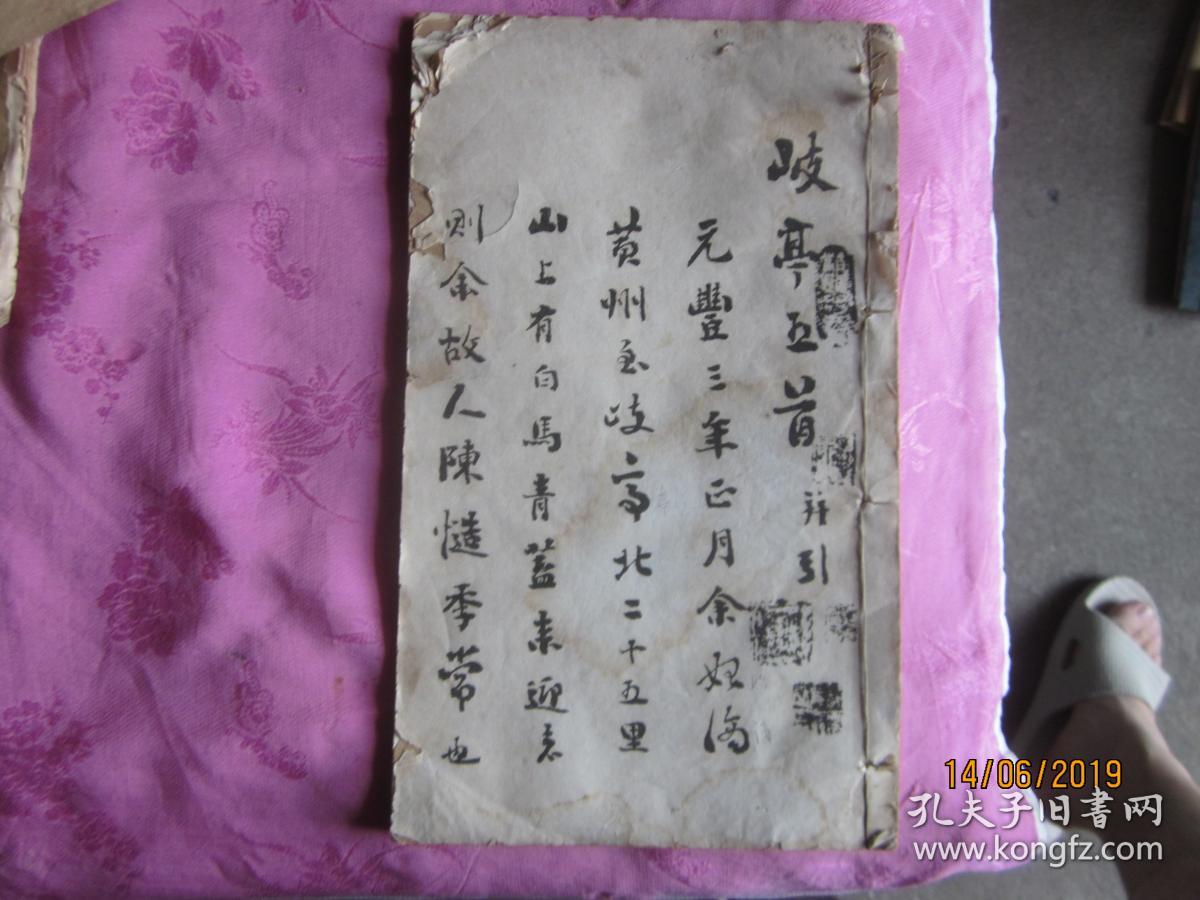 岐亭五首 并引
元豐三年正月余始謫
黃州至岐亭北二十五里
山上有白馬青蓋来迎者
則余故人陳慥季常也
14/06/2019
孔夫子旧書网
www.kongfz.com